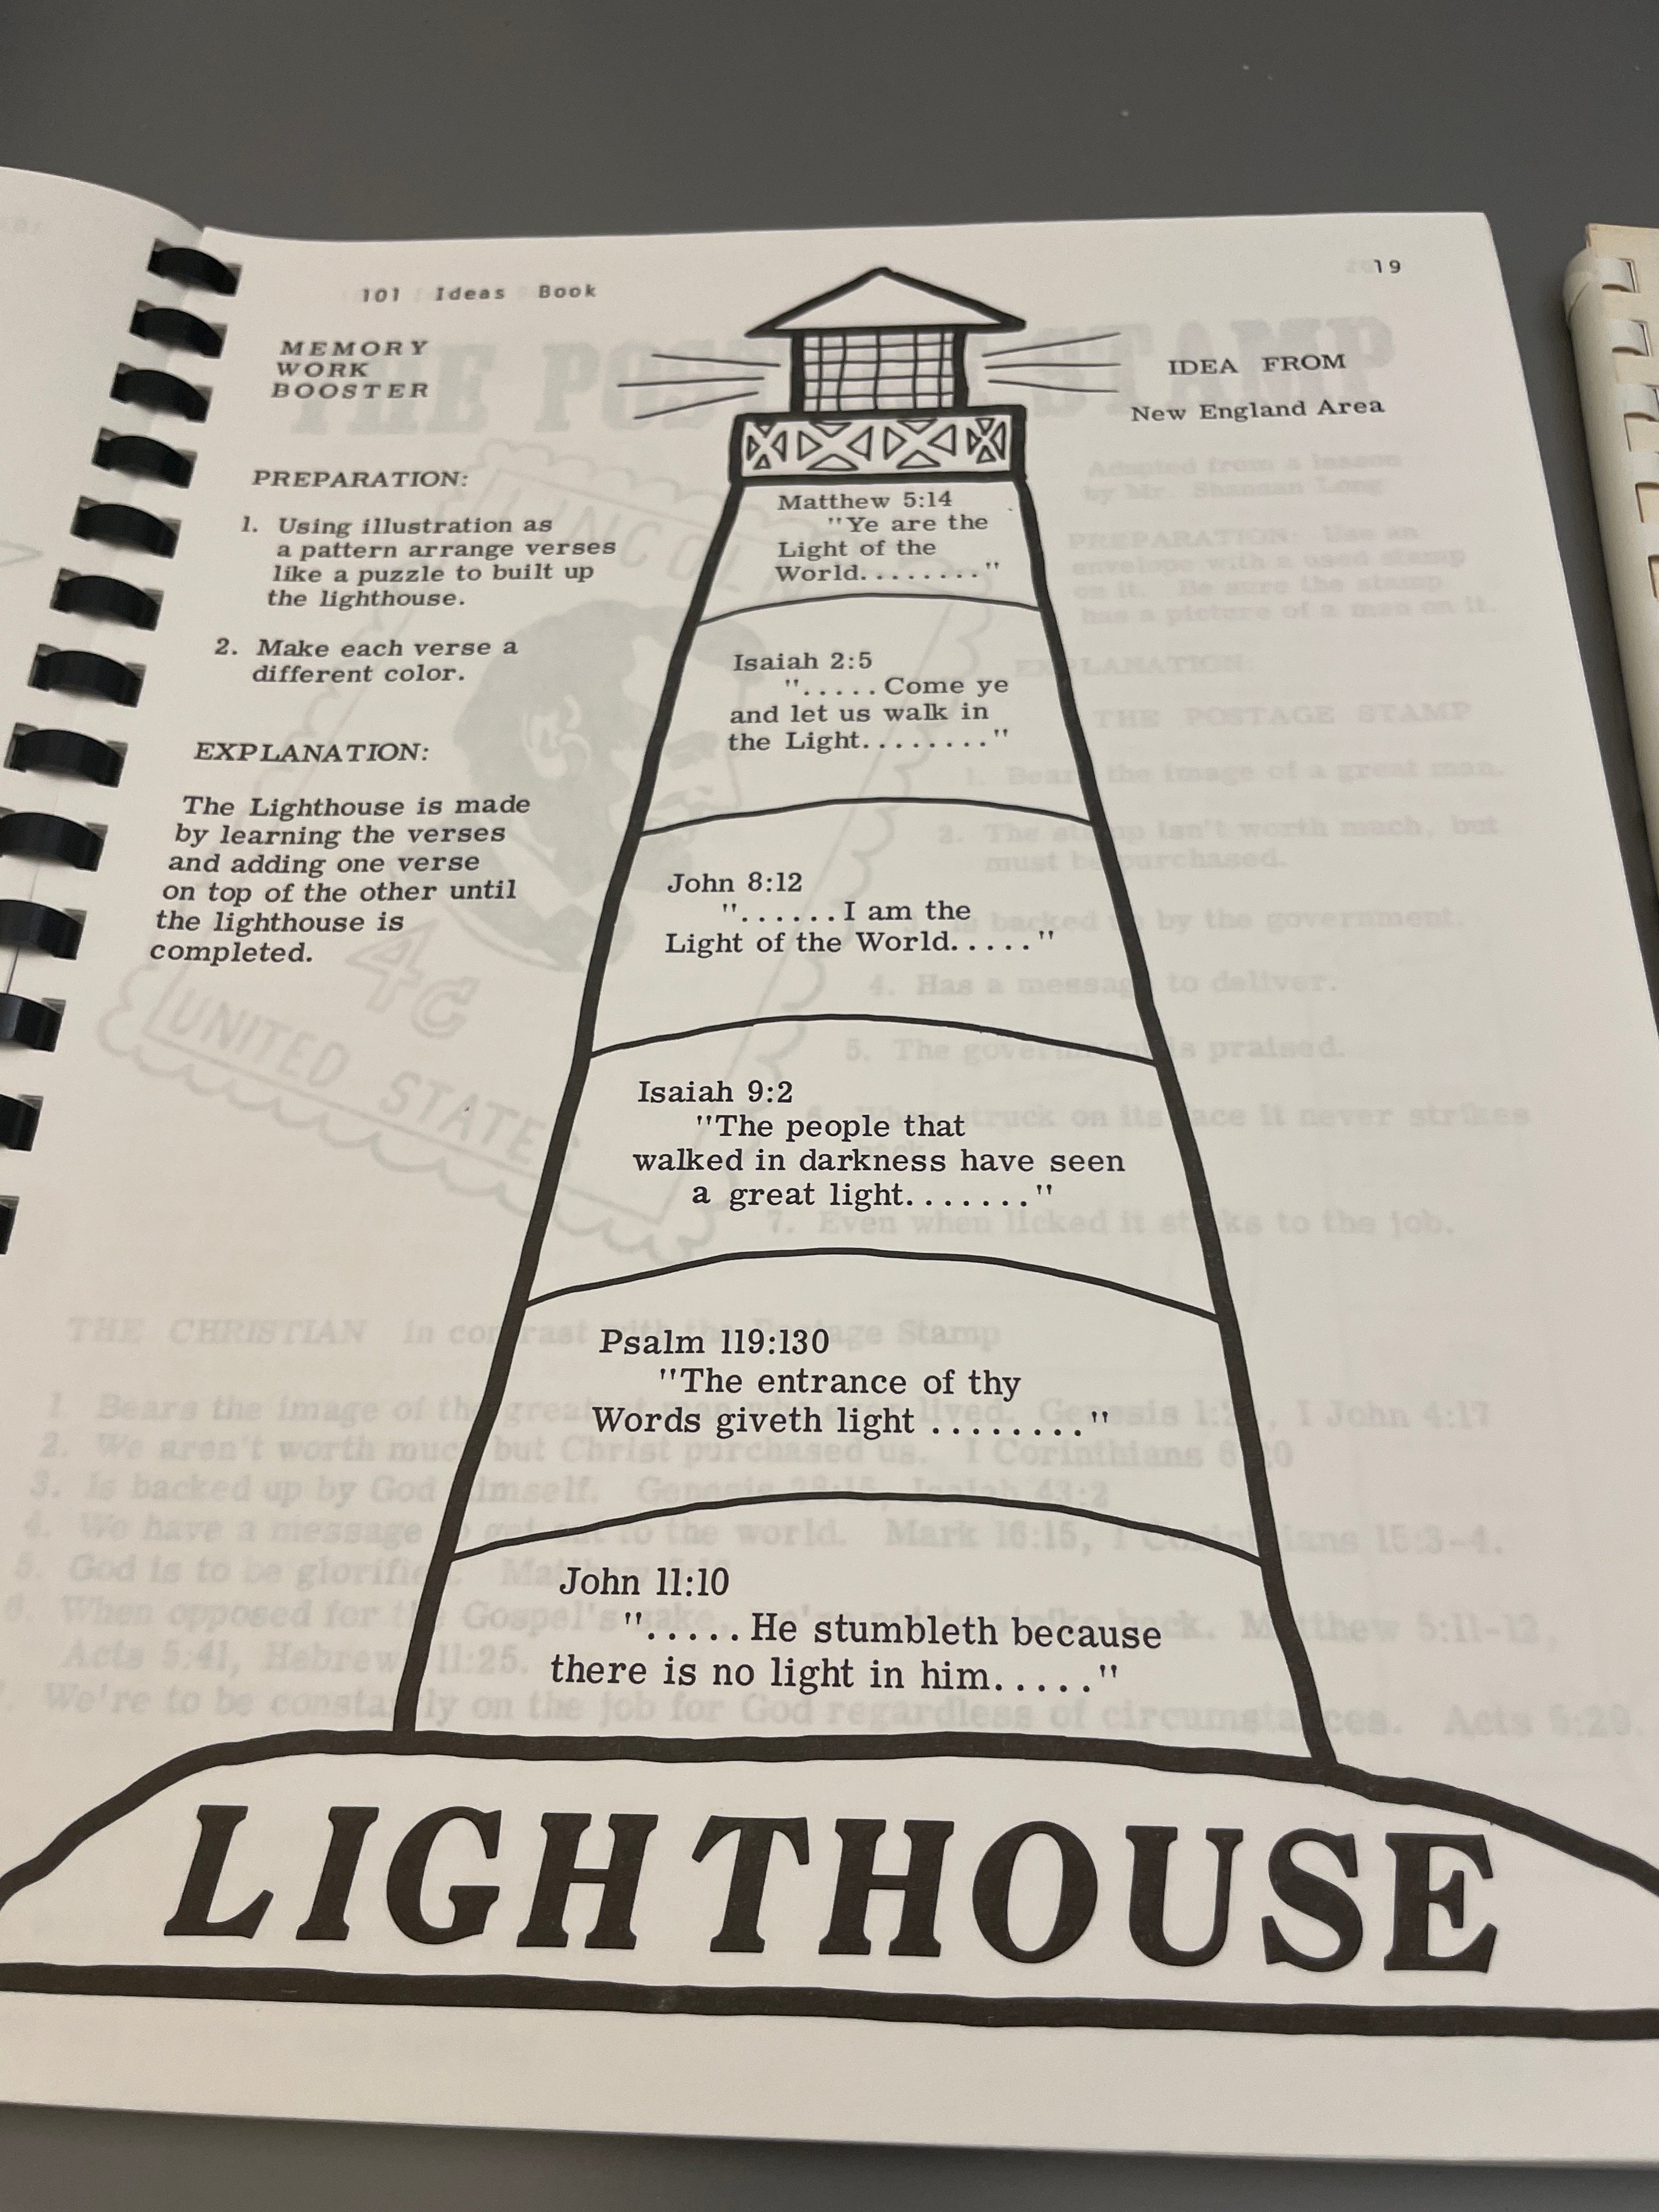 101 Ideas Book
19
MEMORY
WORK
BOOSTER
IDEA FROM
New England Area
PREPARATION:
1. Using illustration as
a pattern arrange verses
like a puzzle to built up
the lighthouse.
2. Make each verse a
different color.
EXPLANATION:
The Lighthouse is made
by learning the verses
and adding one verse
on top of the other until
the lighthouse is
completed.
Matthew 5:14
"Ye are the
Light of the
World........"
Isaiah 2:5
".....Come ye
and let us walk in
the Light........"
John 8:12
"......I am the
Light of the World....."
Isaiah 9:2
"The people that
walked in darkness have seen
a great light......."
Psalm 119:130
"The entrance of thy
Words giveth light ........"
John 11:10
".....He stumbleth because
there is no light in him....."
LIGHTHOUSE